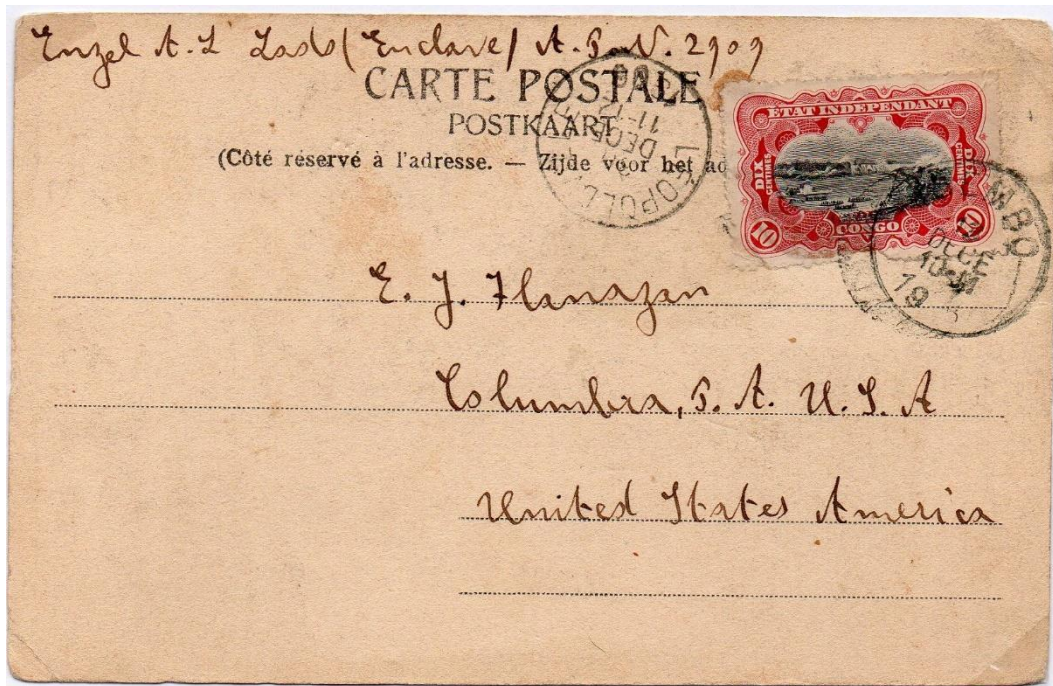 Enzel A. L Lado (Enclave) A. P. V. 2909
CARTE POSTALE
POSTKAART
(Côté réservé à l'adresse. — Zijde voor het ad
ETAT INDÉPENDANT
DIX CENTIMES
DIX CENTIMES
10
CONGO
10
LEOPOLD
DECE
11-
MBO
DECE
10-M
19
E. J. Flanazan
Columbia, P. A. U. S. A
United States America